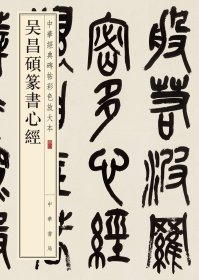 般若波羅
密多心經
中華經典碑帖彩色放大本
吴昌碩篆書心經
中華書局